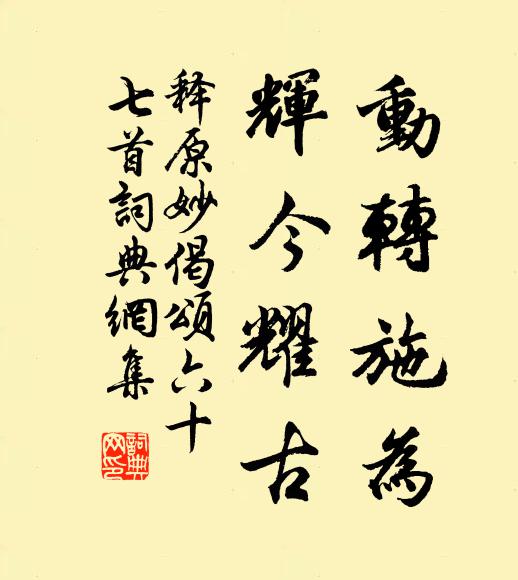 動轉施為
輝今耀古
释原妙偈頌六十
七首詞典網集
詞典
网印